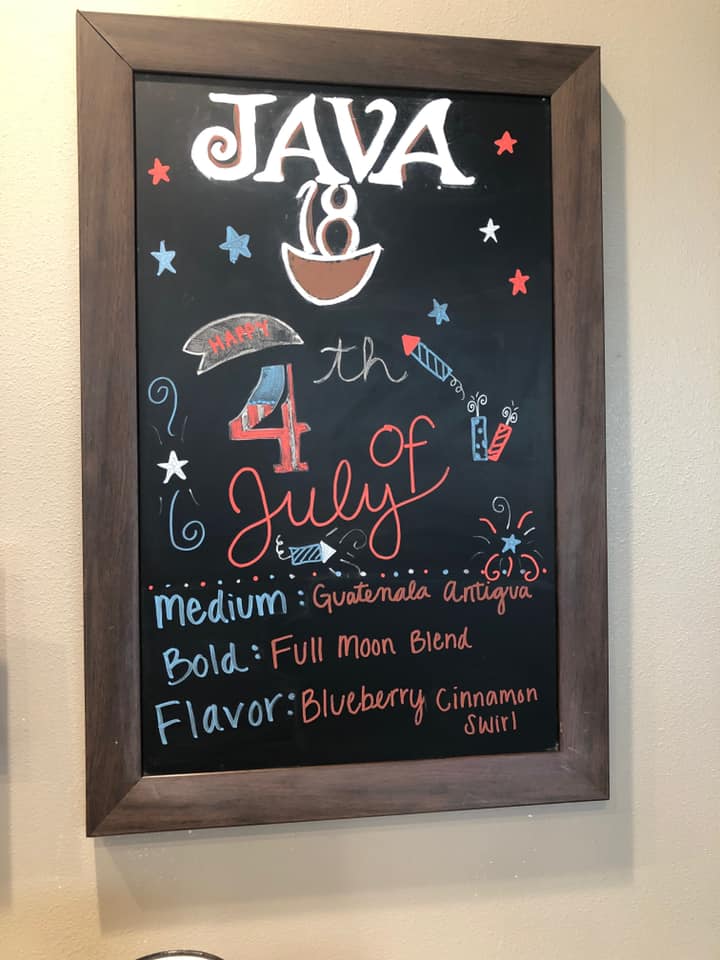 JAVA
18
HAPPY
4th
of
July
Medium: Guatenala Antigua
Bold: Full Moon Blend
Flavor: Blueberry Cinnamon
Swirl